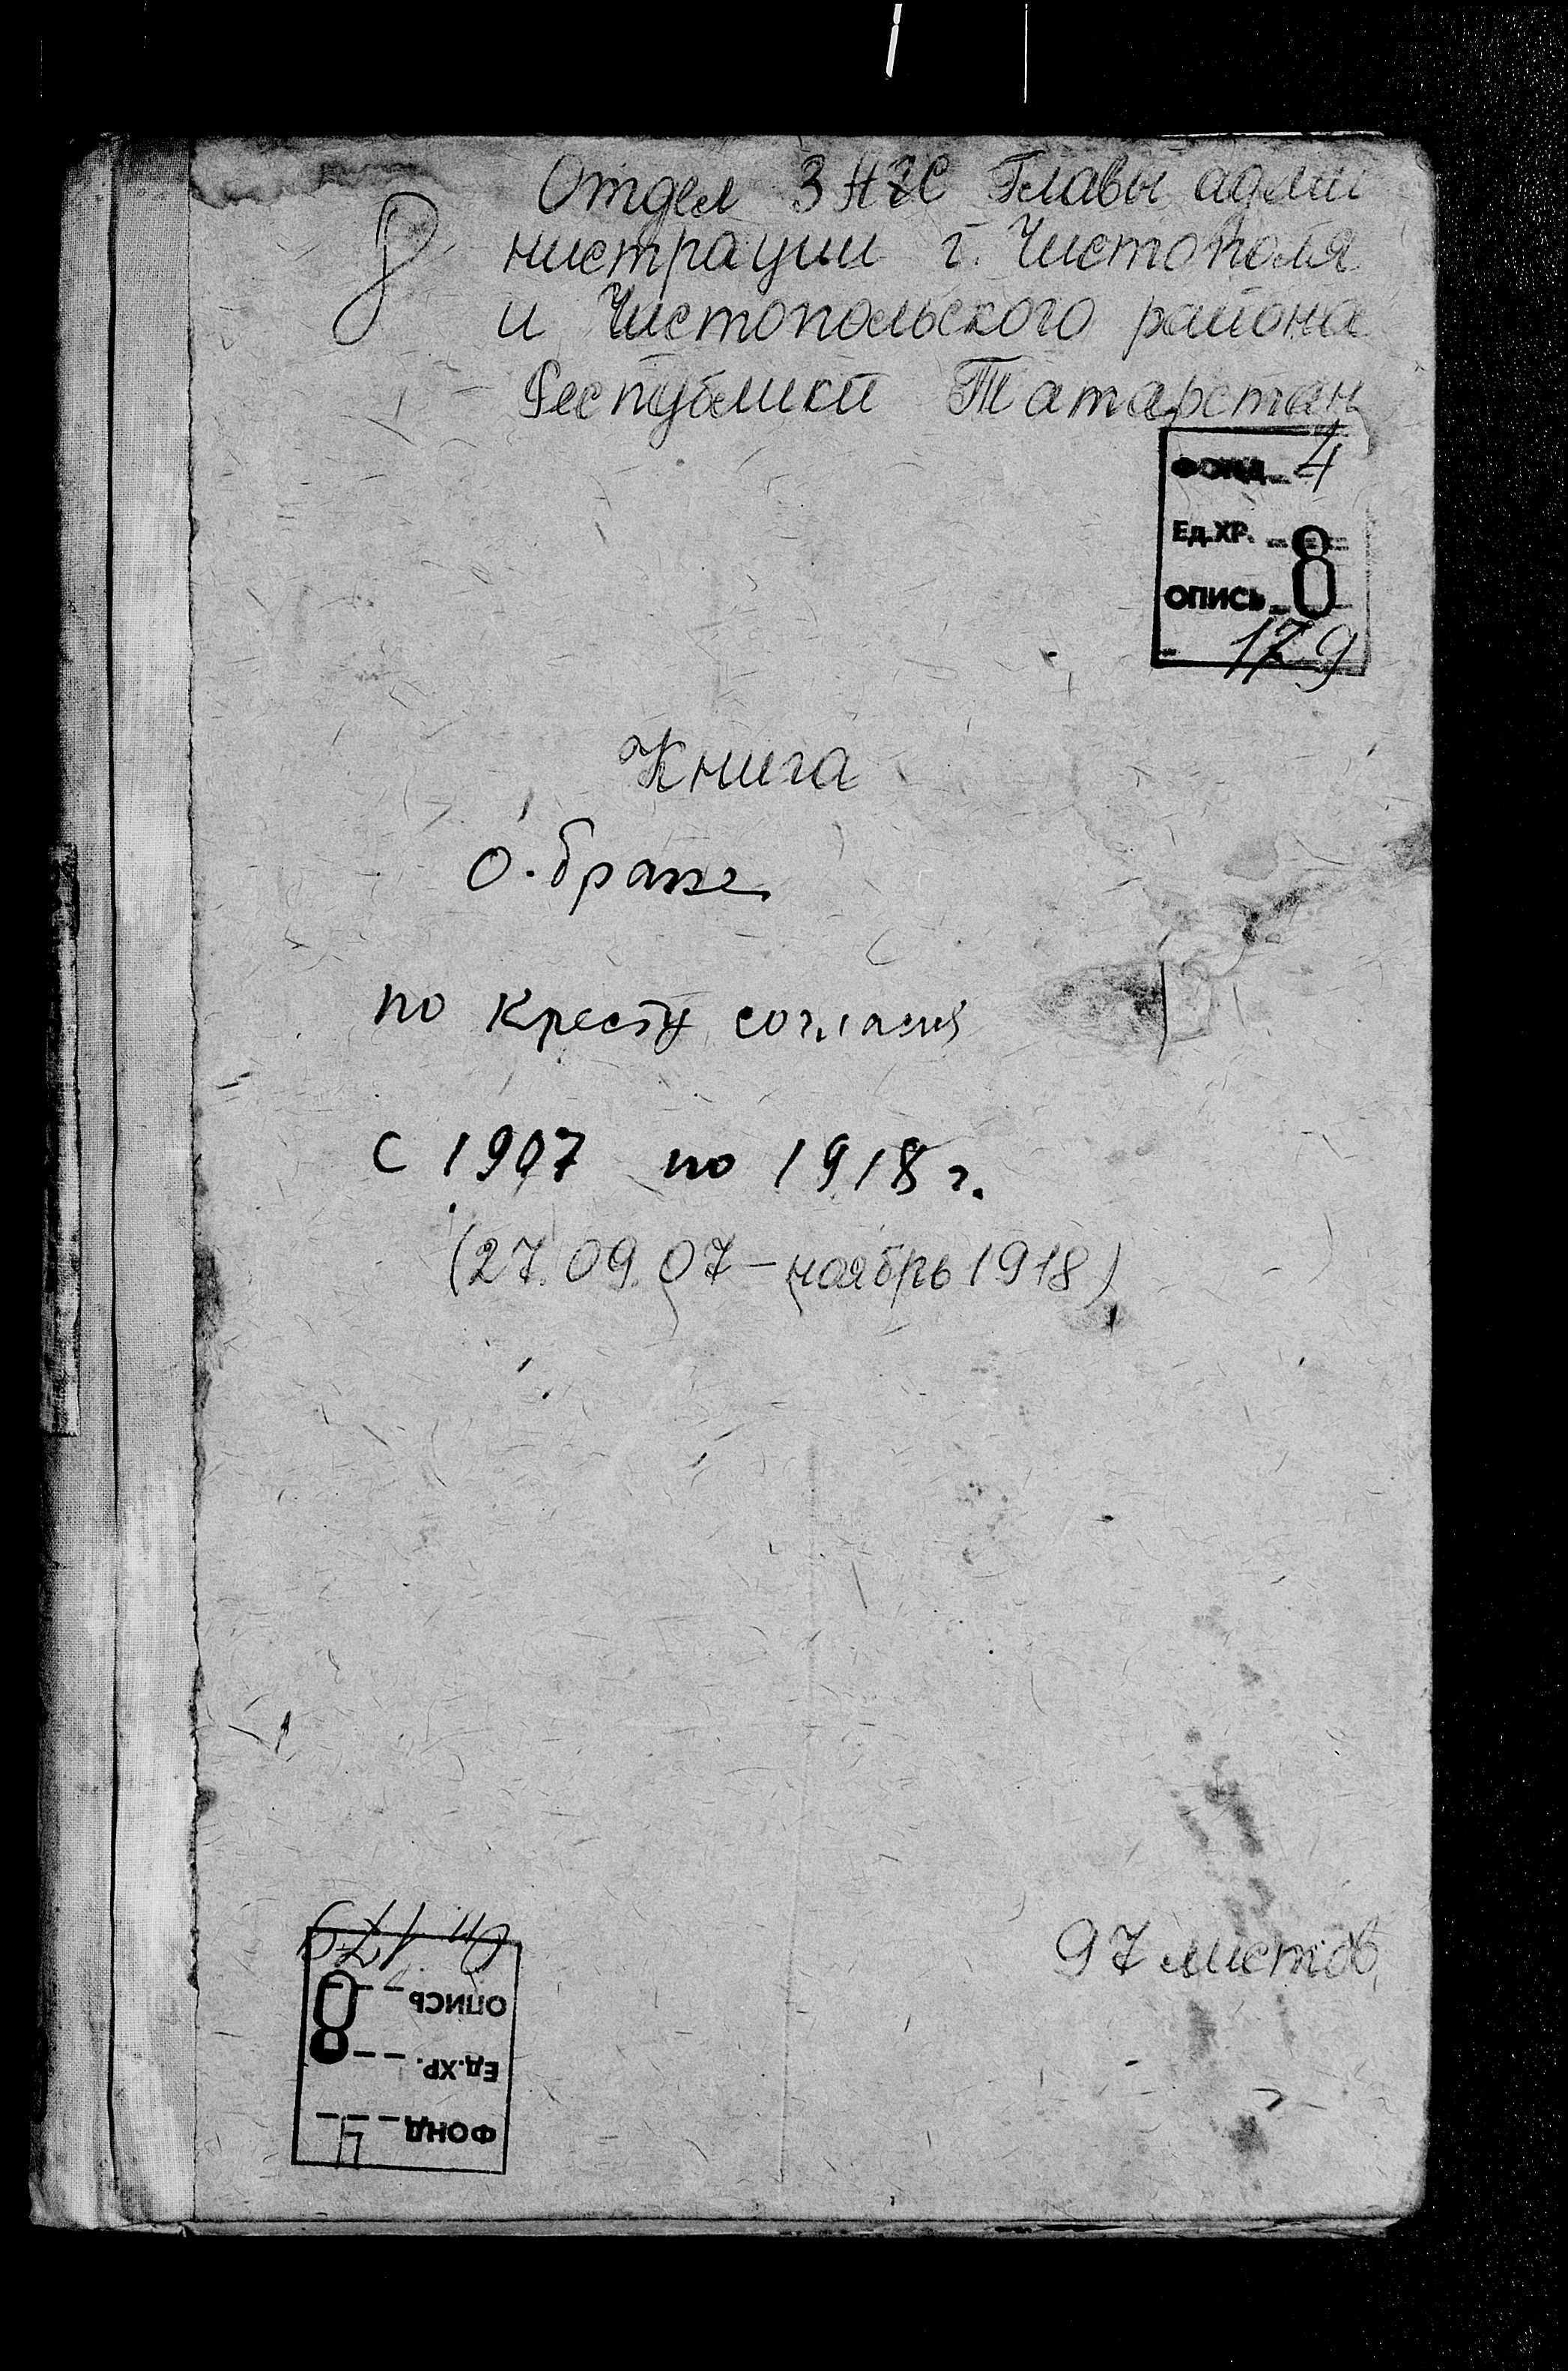 8
Отдел ЗАГС Главы адми
нистрации г. Чистополя
и Чистопольского района
Республики Татарстан
ФОНД 4
Ед.ХР. 8
ОПИСЬ
179
Книга
о браке
по Кресту согласия
с 1907 по 1918 г.
(27.09.07 – ноябрь 1918)
97 листов
оп. 179
ОПИСЬ
Ед.ХР. 8
ФОНД 4